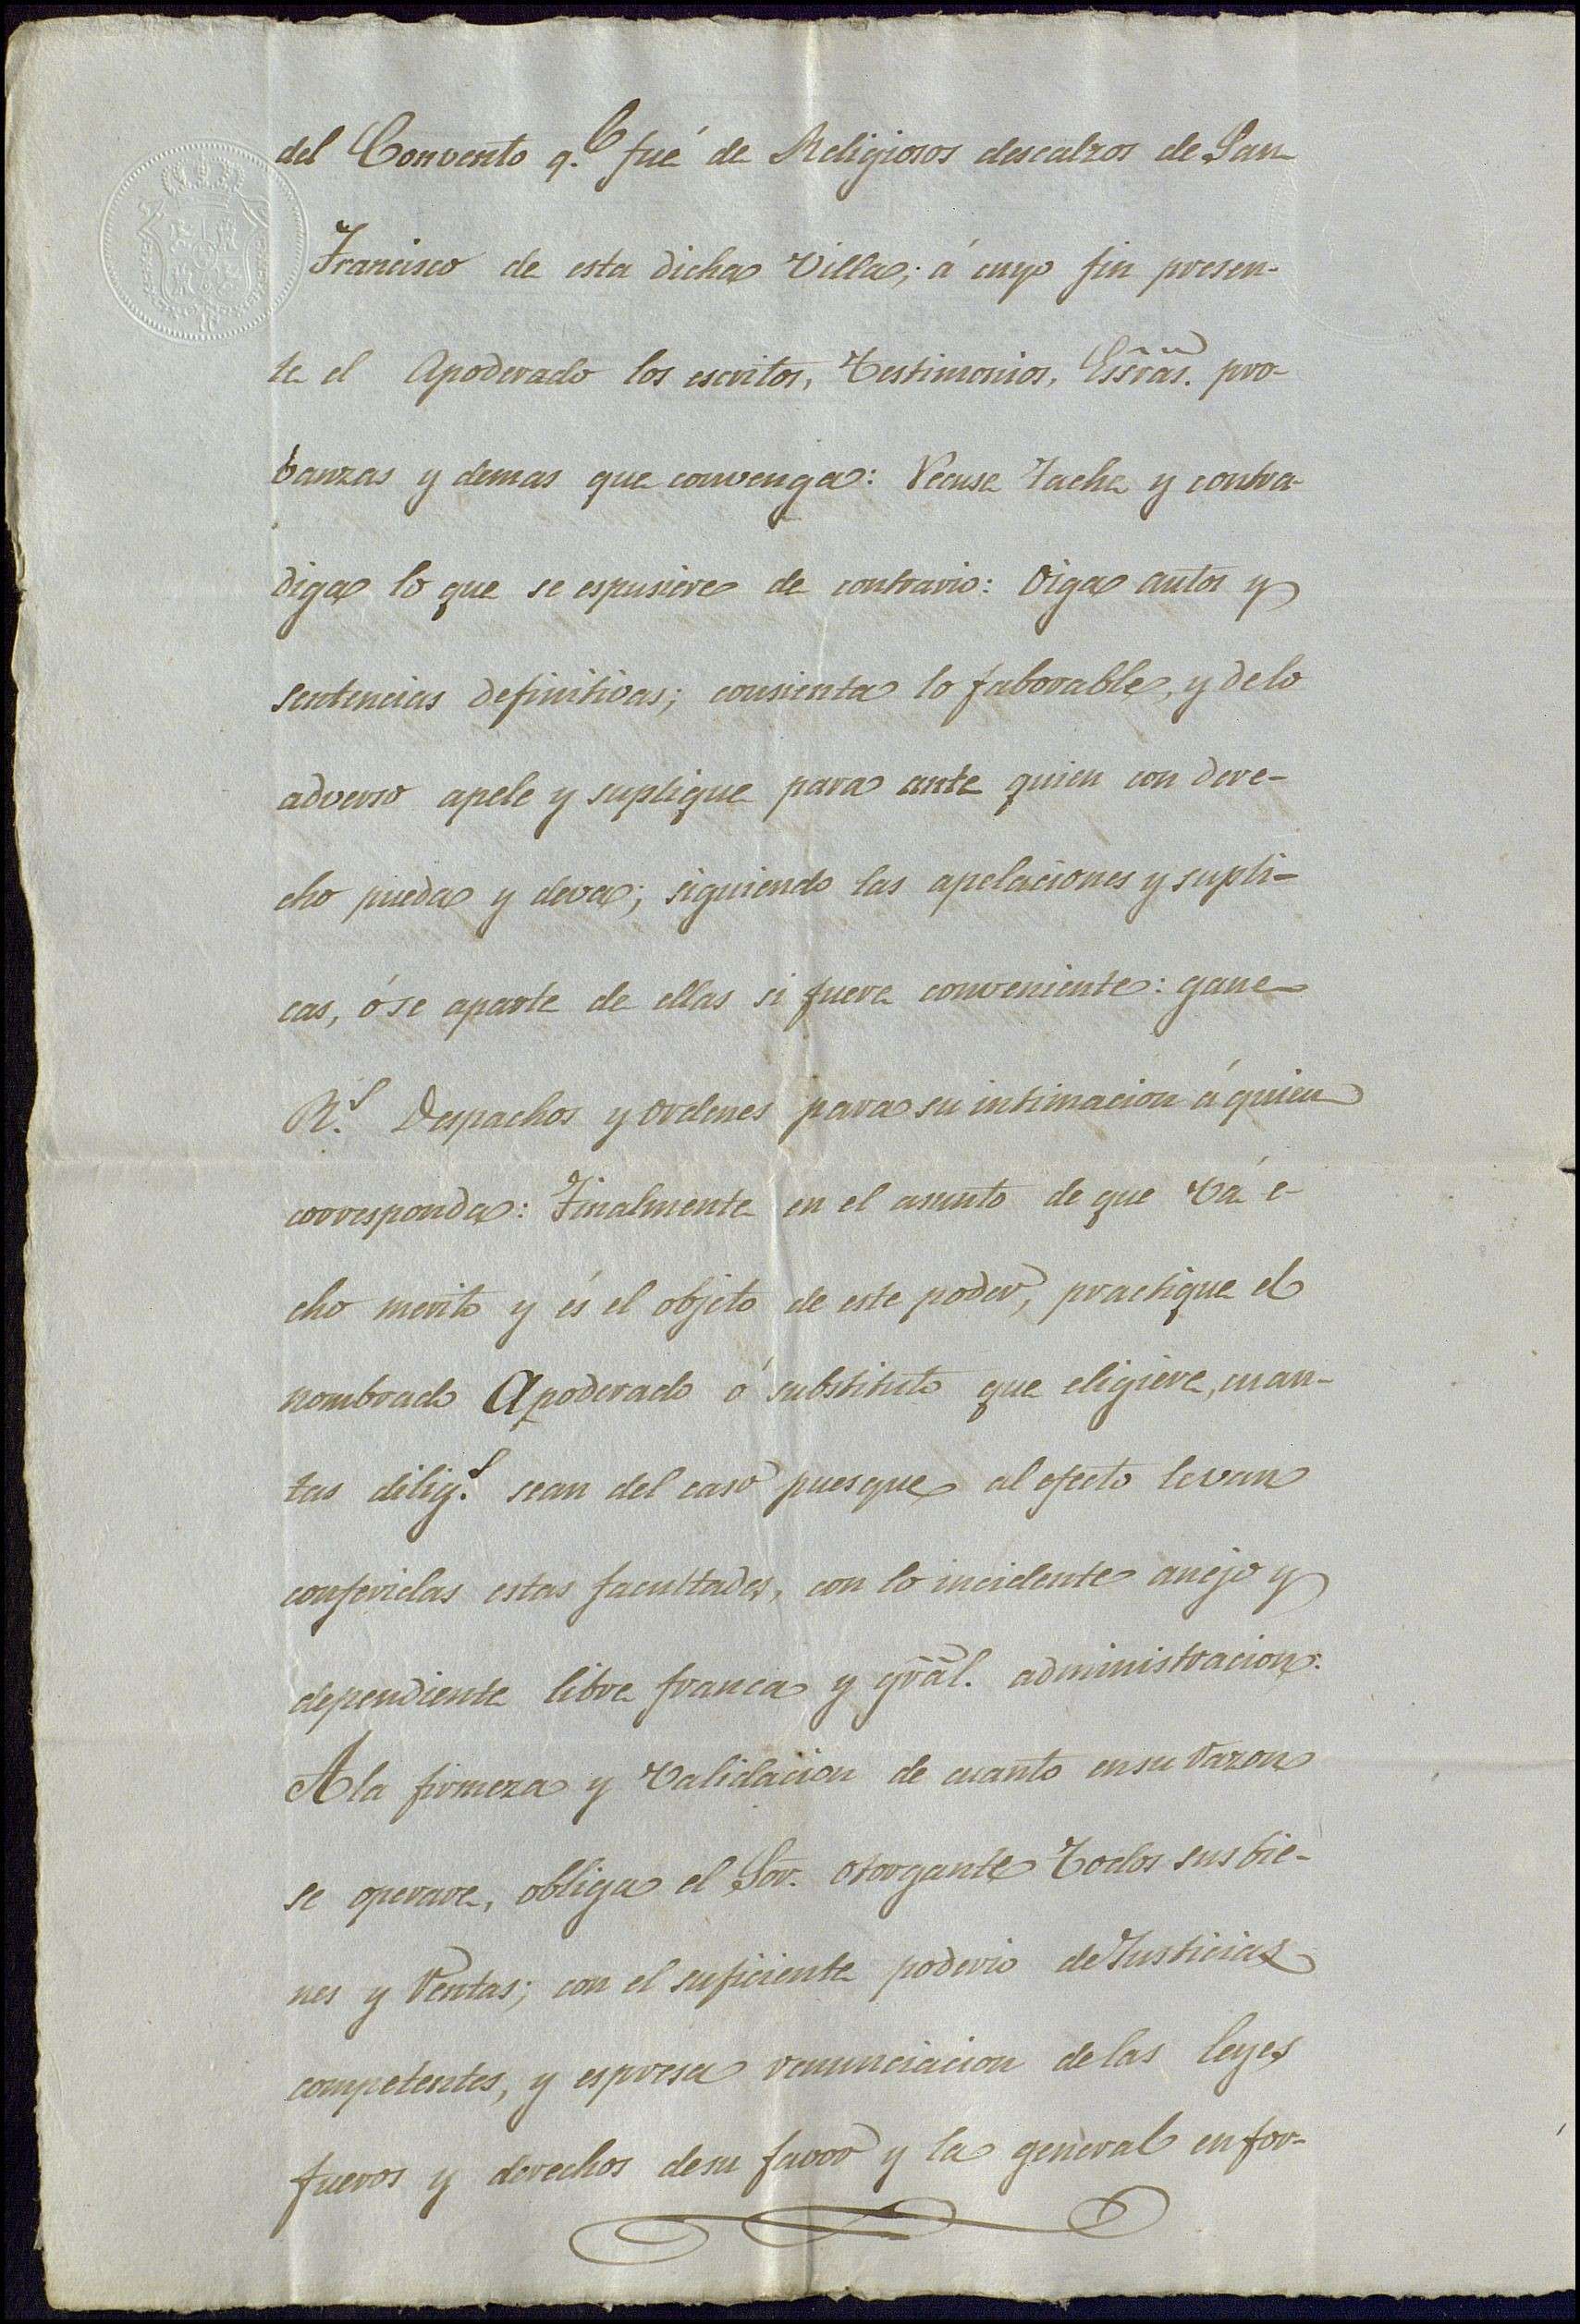 del Convento q.e fué de Religiosos descalzos de San
Francisco de esta dicha Villa; á cuyo fin presen-
te el Apoderado los escritos, Testimonios, Essras. pro-
banzas y demas que convenga: Recuse Tache y contra-
diga lo que se espusiere de contrario: Oiga autos y
sentencias definitivas; consienta lo faborable, y de lo
adverso apele y suplique para ante quien con dere-
cho pueda y deva; siguiendo las apelaciones y supli-
cas, ó se aparte de ellas si fuere conveniente: gane
R.s Despachos y ordenes para su intimacion á quien
corresponda: Finalmente en el asunto de que vá e-
cho merito y és el objeto de este poder, practique el
nombrado Apoderado ó substituto que eligiere, cuan-
tas dilig.s sean del caso puesque al efecto le van
conferidas estas facultades, con lo incidente anejo y
dependiente libre franca y gral. administracion.
A la firmeza y validacion de cuanto en su razon
se operare, obliga el Sor. otorgante Todos sus bie-
nes y Rentas; con el suficiente poderio de Justicias
competentes, y espresa renunciacion de las leyes
fueros y derechos de su favor y la general en for-